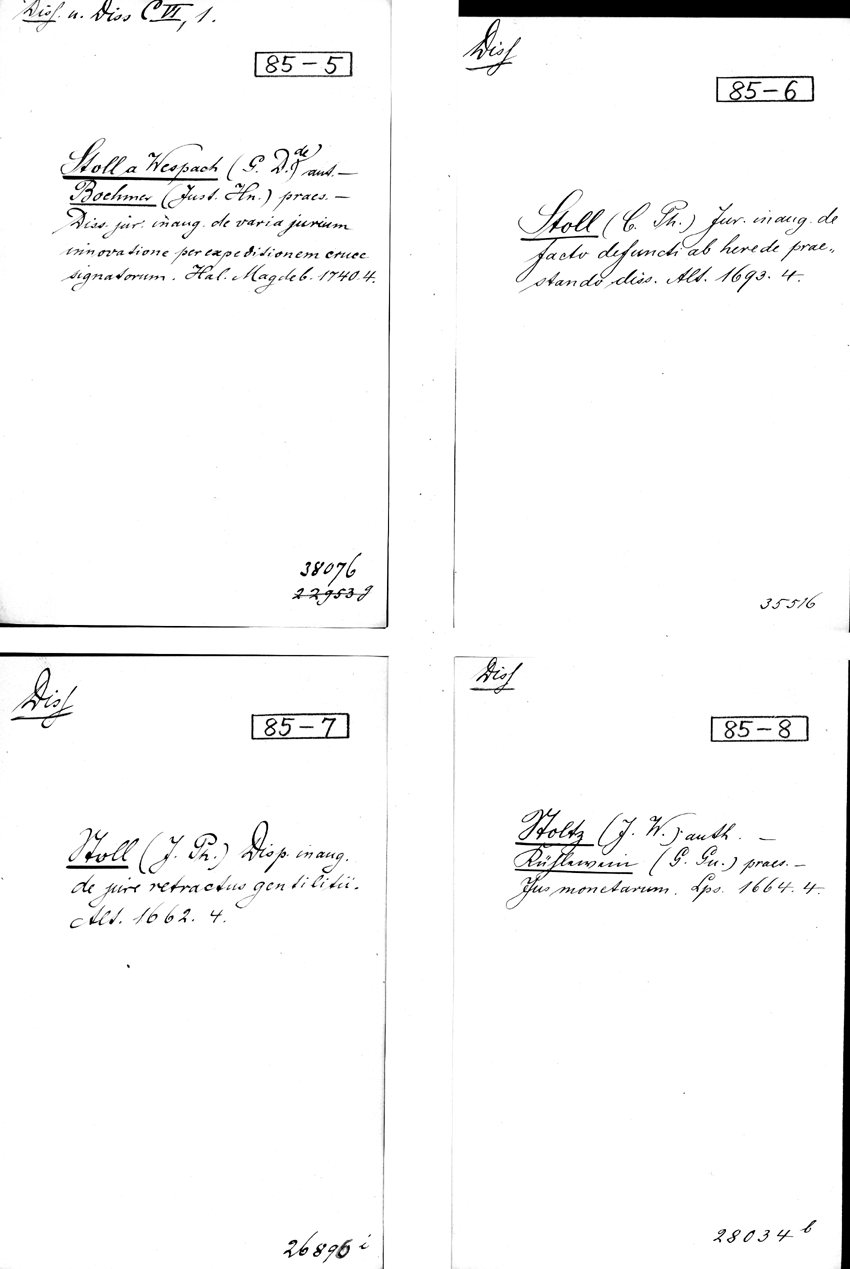 Diss. u. Diss CVI, 1.
85-5
Stoll a Wespach (G. D. de) aut. —
Boehmer (Just. Hn.) praes. —
Diss. jur. inaug. de varia jurium
innovatione per expeditionem cruce
signatorum. Hal. Magdeb. 1740. 4.
38076
22953 g
Diss
85-6
Stoll (C. Ph.) Jur. inaug. de
facto defuncti ab herede prae„
stando diss. Alt. 1693. 4.
35516
Diss
85-7
Stoll (J. Ph.) Disp. inaug.
de jure retractus gentilitii.
Alt. 1662. 4.
26896 i
Diss
85-8
Stoltz (J. W.) auth. —
Kühlewein (G. Gu.) praes. —
Jus monetarum. Lps. 1664. 4.
28034 b